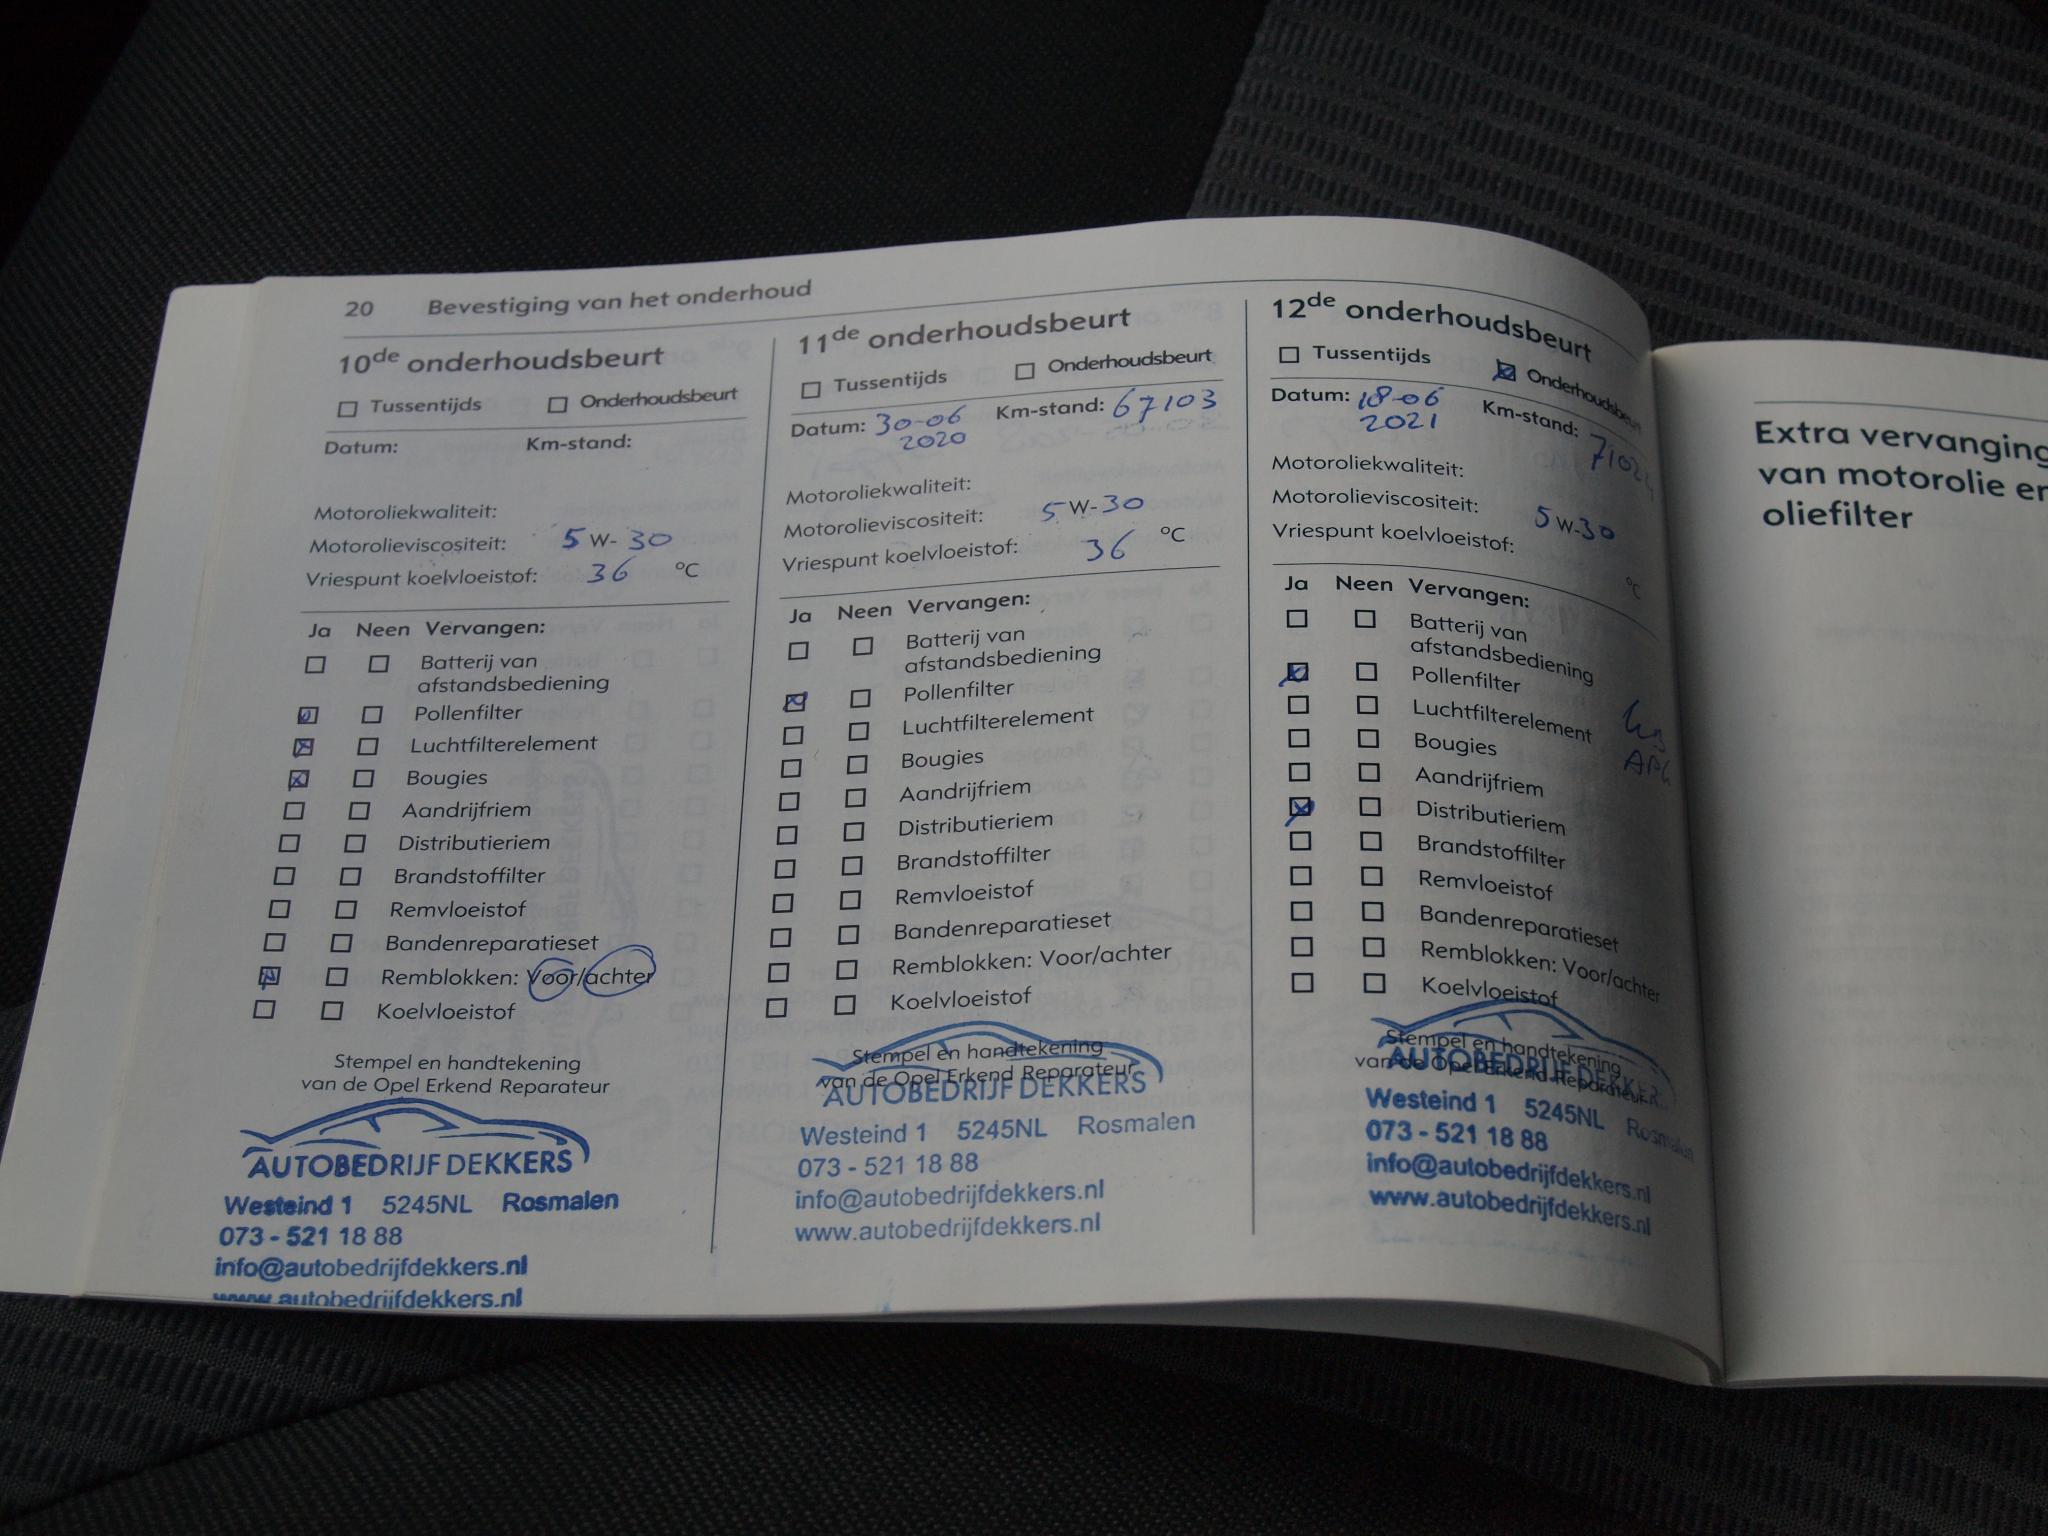 20 Bevestiging van het onderhoud
10de onderhoudsbeurt
Tussentijds Onderhoudsbeurt
Datum: Km-stand:
Motoroliekwaliteit:
Motorolieviscositeit: 5 W- 30
Vriespunt koelvloeistof: 36 °C
Ja Neen Vervangen:
Batterij van
afstandsbediening
Pollenfilter
Luchtfilterelement
Bougies
Aandrijfriem
Distributieriem
Brandstoffilter
Remvloeistof
Bandenreparatieset
Remblokken: Voor/achter
Koelvloeistof
Stempel en handtekening
van de Opel Erkend Reparateur
AUTOBEDRIJF DEKKERS
Westeind 1 5245NL Rosmalen
073 - 521 18 88
info@autobedrijfdekkers.nl
www.autobedrijfdekkers.nl
11de onderhoudsbeurt
Tussentijds Onderhoudsbeurt
Datum: 30-06 Km-stand: 67103
2020
Motoroliekwaliteit:
Motorolieviscositeit: 5 W- 30
Vriespunt koelvloeistof: 36 °C
Ja Neen Vervangen:
Batterij van
afstandsbediening
Pollenfilter
Luchtfilterelement
Bougies
Aandrijfriem
Distributieriem
Brandstoffilter
Remvloeistof
Bandenreparatieset
Remblokken: Voor/achter
Koelvloeistof
Stempel en handtekening
van de Opel Erkend Reparateur
AUTOBEDRIJF DEKKERS
Westeind 1 5245NL Rosmalen
073 - 521 18 88
info@autobedrijfdekkers.nl
www.autobedrijfdekkers.nl
12de onderhoudsbeurt
Tussentijds Onderhoudsbeurt
Datum: 18-06 Km-stand:
2021
Motoroliekwaliteit:
Motorolieviscositeit: 5 W-30
Vriespunt koelvloeistof: °C
Ja Neen Vervangen:
Batterij van
afstandsbediening
Pollenfilter
Luchtfilterelement
Bougies
APK
Aandrijfriem
Distributieriem
Brandstoffilter
Remvloeistof
Bandenreparatieset
Remblokken: Voor/achter
Koelvloeistof
Stempel en handtekening
van de Opel Erkend Reparateur
AUTOBEDRIJF DEKKERS
Westeind 1 5245NL Rosmalen
073 - 521 18 88
info@autobedrijfdekkers.nl
www.autobedrijfdekkers.nl
Extra vervanging
van motorolie en
oliefilter